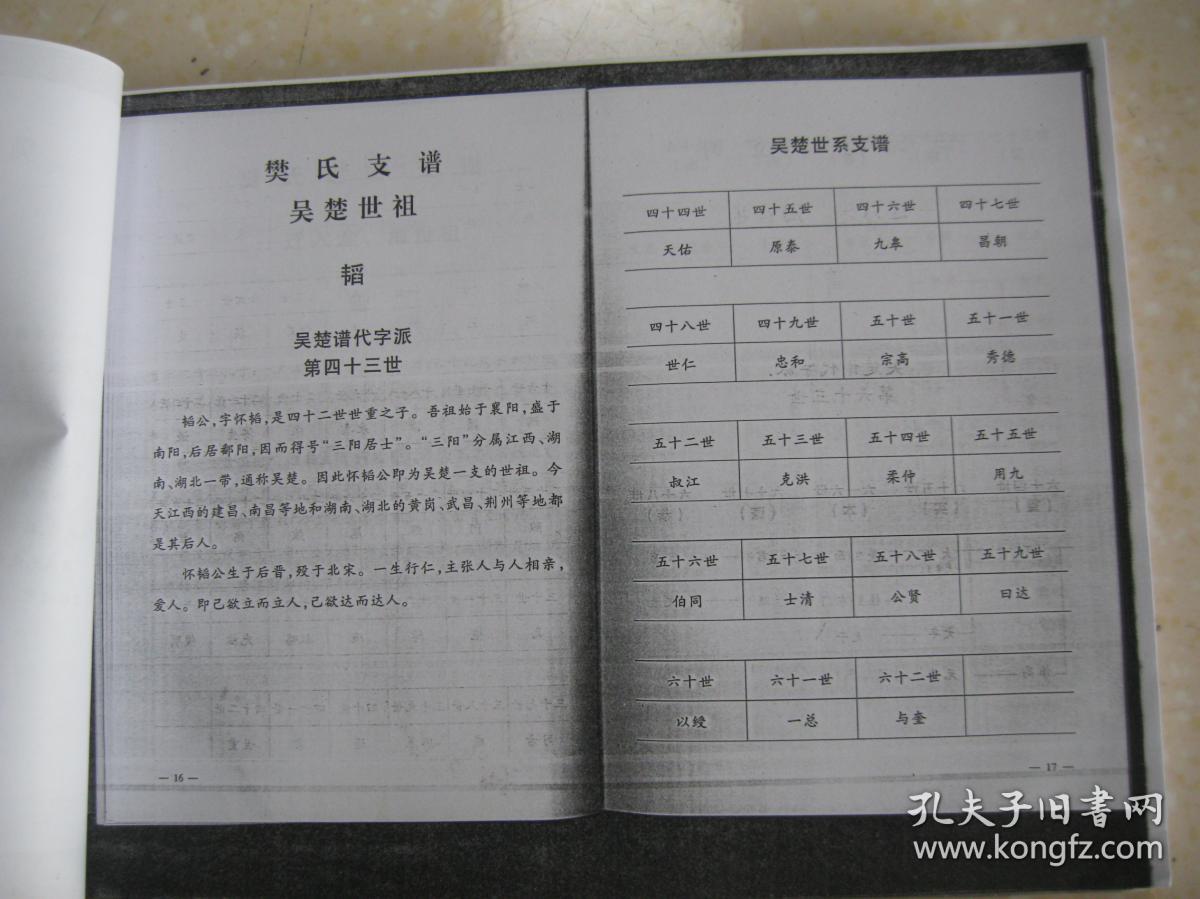 樊氏支谱
吴楚世祖
韬
吴楚谱代字派
第四十三世
韬公,字怀韬,是四十二世世重之子。吾祖始于襄阳,盛于
南阳,后居鄱阳,因而得号“三阳居士”。“三阳”分属江西、湖
南、湖北一带,通称吴楚。因此怀韬公即为吴楚一支的世祖。今
天江西的建昌、南昌等地和湖南、湖北的黄岗、武昌、荆州等地都
是其后人。
怀韬公生于后晋,殁于北宋。一生行仁,主张人与人相亲,
爱人。即己欲立而立人,己欲达而达人。
— 16 —
吴楚世系支谱
四十四世 四十五世 四十六世 四十七世
天佑 原泰 九皋 昌朝
四十八世 四十九世 五十世 五十一世
世仁 忠和 宗高 秀德
五十二世 五十三世 五十四世 五十五世
叔江 克洪 柔仲 用九
五十六世 五十七世 五十八世 五十九世
伯同 士清 公贤 日达
六十世 六十一世 六十二世
以绶 一总 与奎
— 17 —
孔夫子旧书网
www.kongfz.com